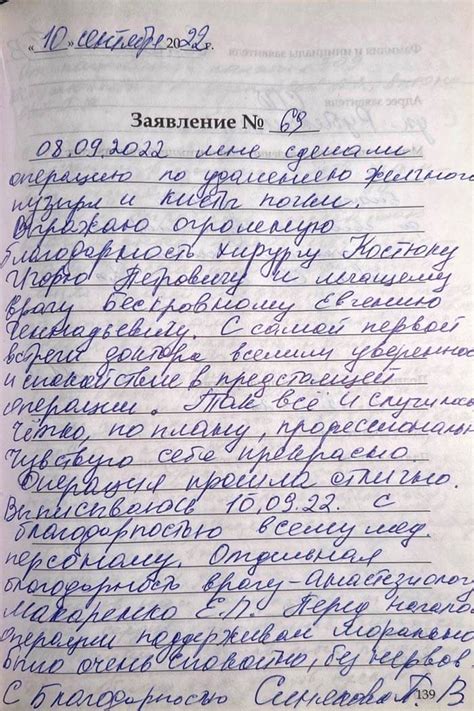 « 10 » сентября 2022 г.
Заявление № 69
08.09.2022 мне сделали
операцию по удалению желчного
пузыря и кисты почки.
Выражаю огромную
благодарность хирургу Костюку
Игорю Петровичу и лечащему
врачу Бескровному Евгению
Геннадьевичу. С самой первой
встречи доктора вселили уверенность
и спокойствие в предстоящей
операции. Так всё и случилось
Чётко, по плану, профессионально
Чувствую себя прекрасно.
Операция прошла отлично.
Выписываюсь 10.09.22. С
благодарностью всему мед.
персоналу. Отдельная
благодарность врачу-анастезиологу
Макаренко Е.П. Перед началом
операции поддерживал морально
было очень спокойно, без нервов
С благодарностью В
139